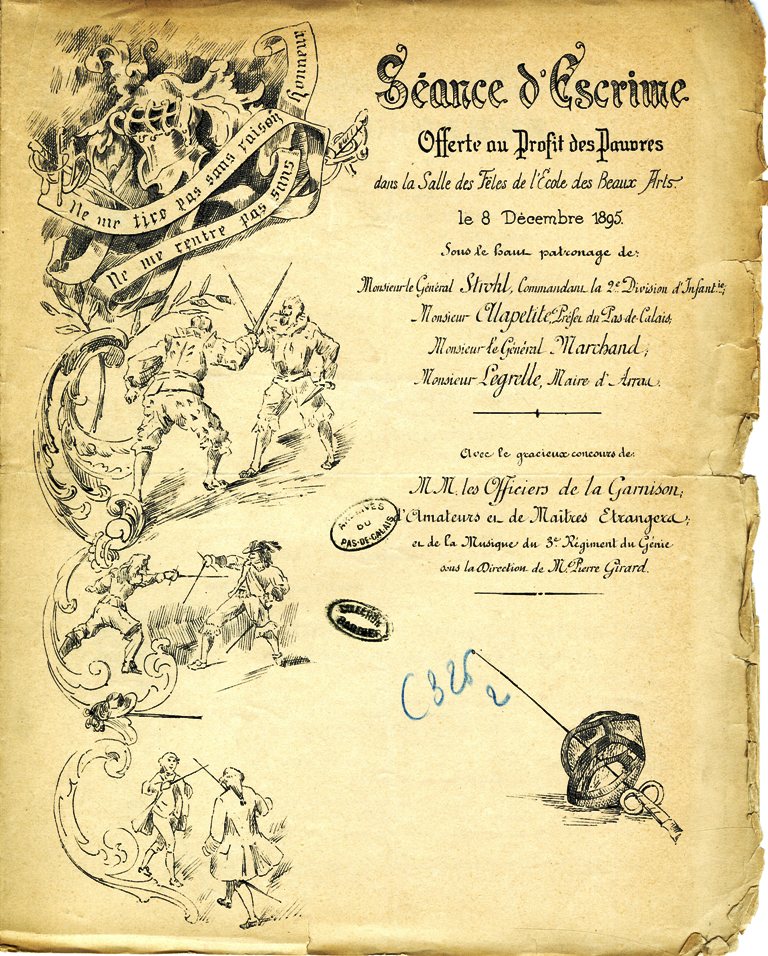 Ne me tire pas sans raison
Ne me rentre pas sans honneur
Séance d'Escrime
Offerte au Profit des Pauvres
dans la Salle des Fêtes de l'École des Beaux Arts.
le 8 Décembre 1895.
Sous le haut patronage de:
Monsieur le Général Strohl, Commandant la 2e Division d'Infantie;
Monsieur Alapetite, Préfet du Pas-de-Calais;
Monsieur le Général Marchand;
Monsieur Legrelle, Maire d'Arras.
Avec le gracieux concours de:
M.M. les Officiers de la Garnison;
d'Amateurs et de Maîtres Etrangers;
et de la Musique du 3e Régiment du Génie
sous la Direction de Mr Pierre Girard.
ARCHIVES
DU
PAS-DE-CALAIS
C 326
2